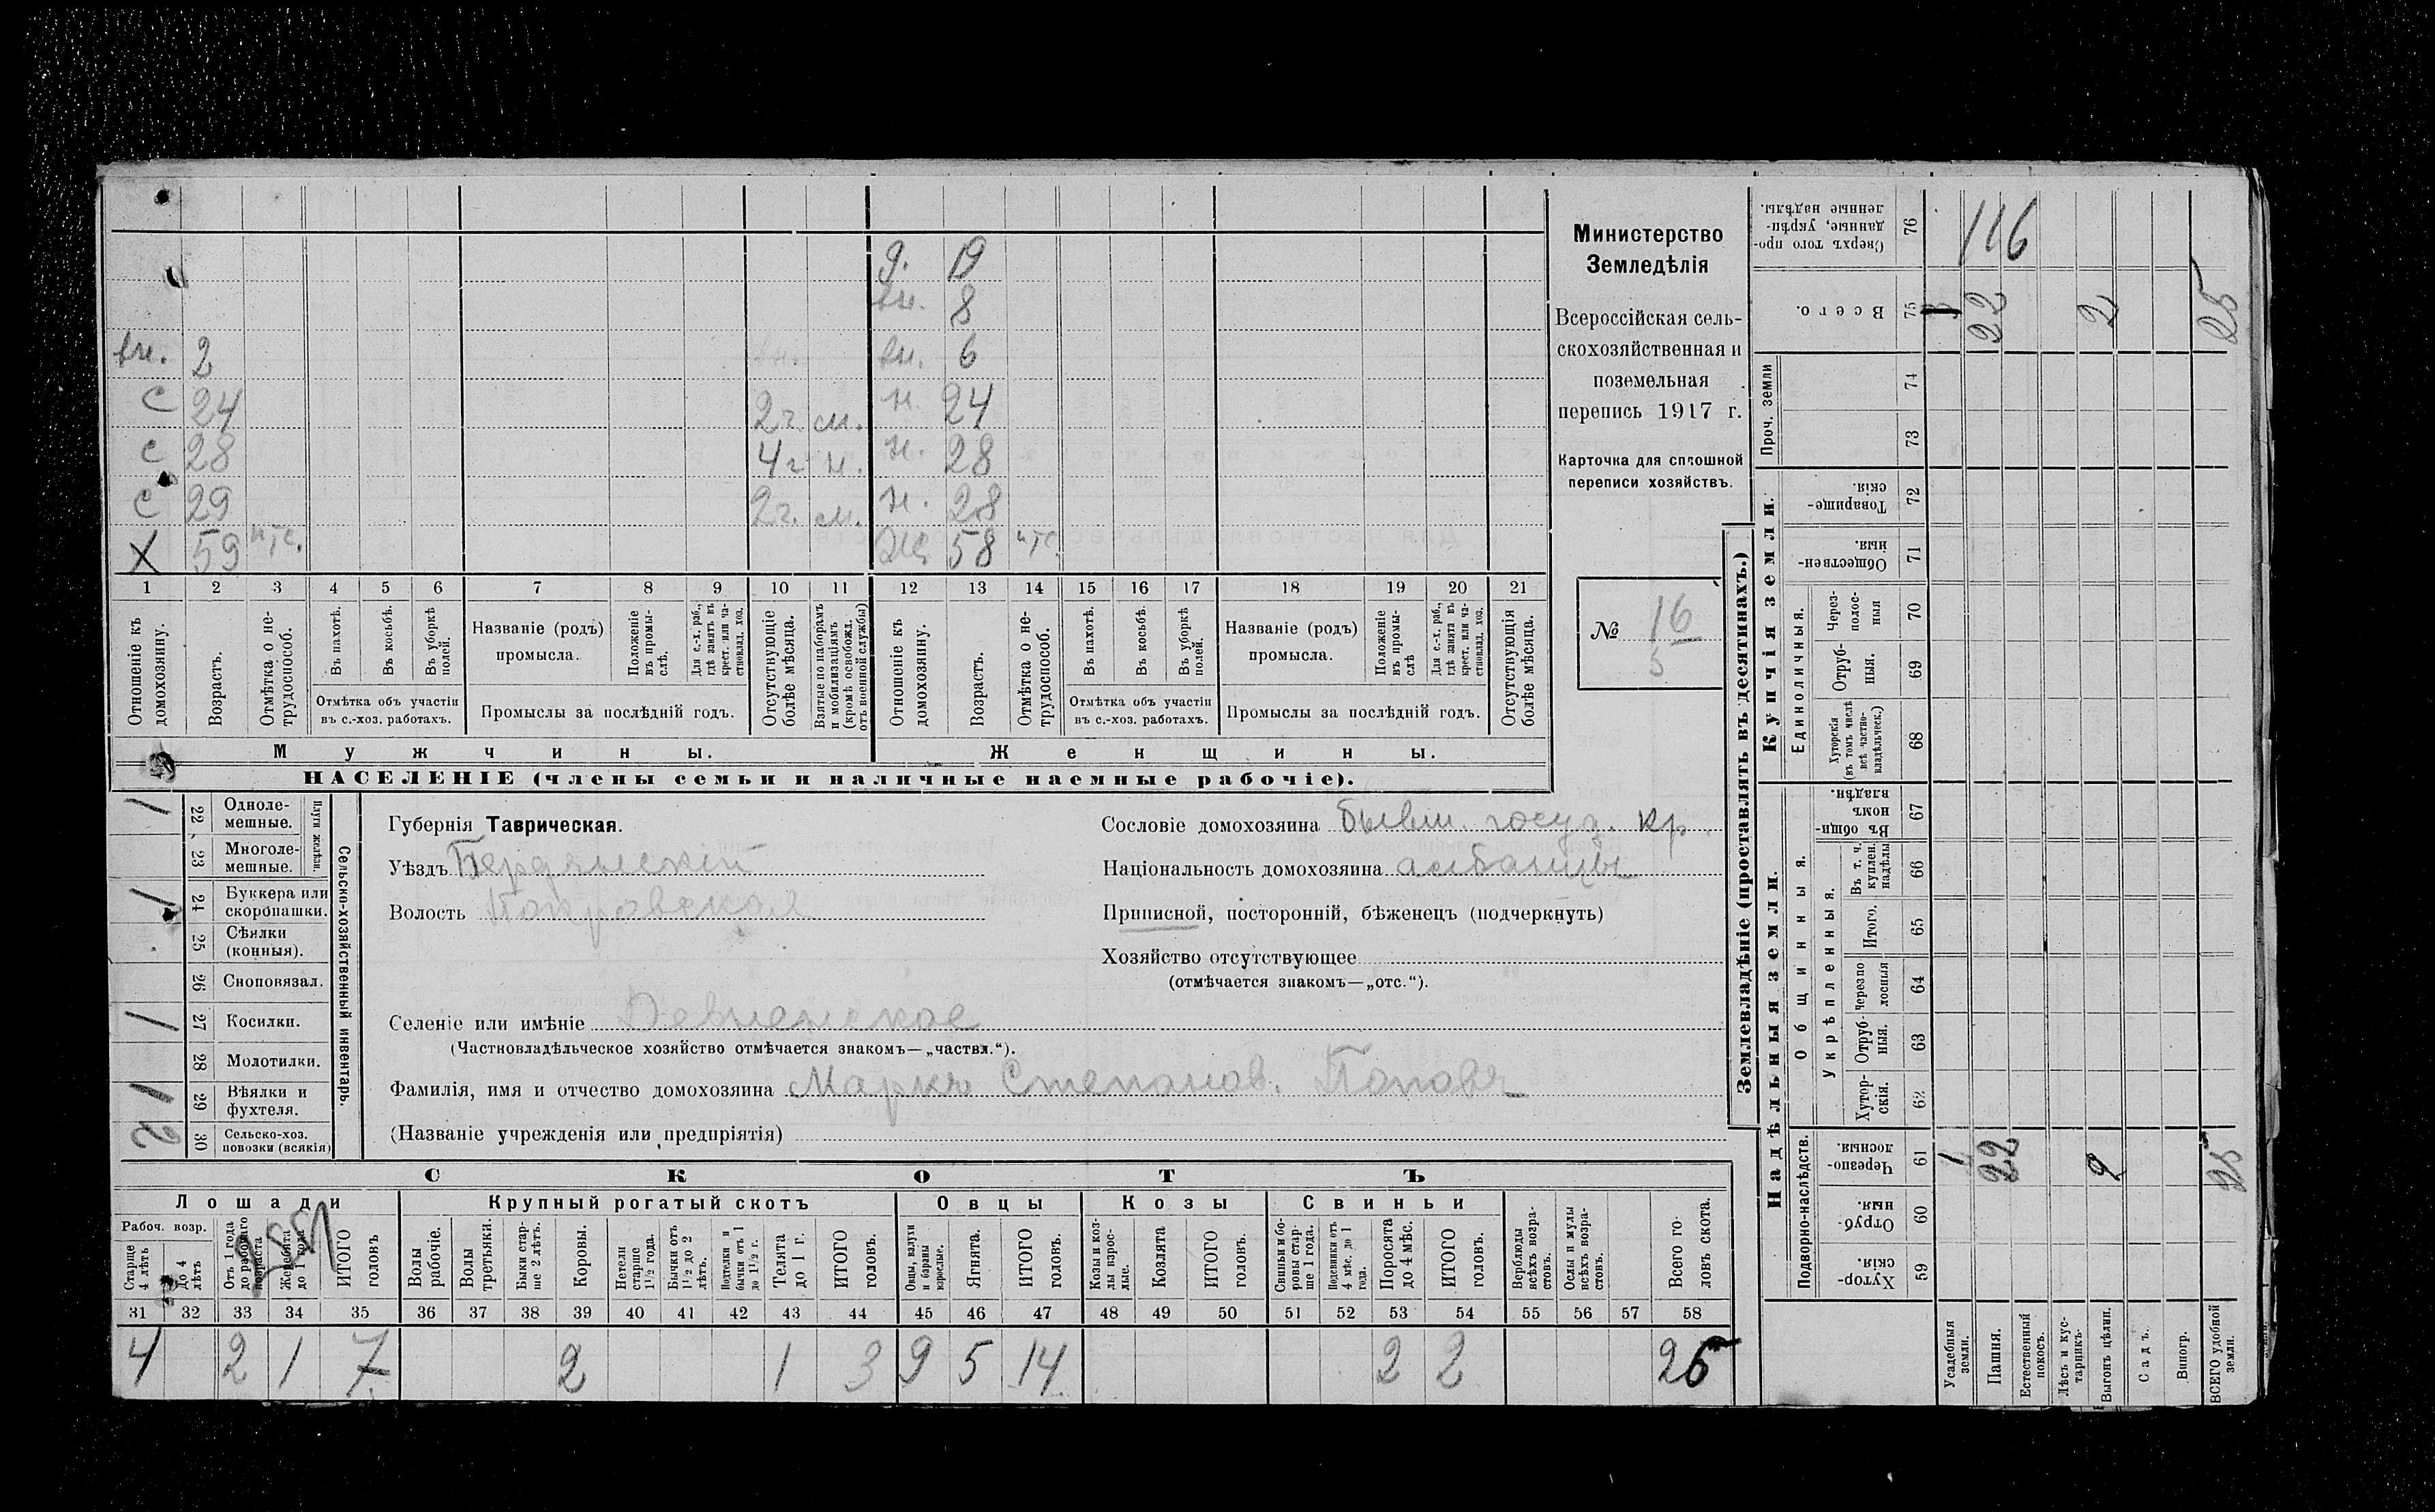 Министерство
Земледѣлія
Всероссійская сель-
скохозяйственная и
поземельная
перепись 1917 г.
Карточка для сплошной
переписи хозяйствъ.
№ 16
5
д. 19
вн. 8
вн. 2 вн. 6
с 24 2 г. м. н. 24
с 28 4 г н. н. 28
с 29 2 г. м. н. 28
Х 59 58
1 2 3 4 5 6 7 8 9 10 11 12 13 14 15 16 17 18 19 20 21
Отношеніе къ домохозяину.
Возрастъ.
Отмѣтка о не-трудоспособ.
Въ пахотѣ.
Въ косьбѣ.
Въ уборкѣ полей.
Отмѣтка объ участіи
въ с.-хоз. работахъ.
Названіе (родъ)
промысла.
Положеніе въ промы-слѣ.
Для с.-х. раб., гдѣ занятъ въ крест. или ча-стновлад. хоз.
Промыслы за послѣдній годъ.
Отсутствующіе болѣе мѣсяца.
Взятые по наборамъ и мобилизаціямъ (кромѣ освобожд. отъ военной службы)
Отношеніе къ домохозяину.
Возрастъ.
Отмѣтка о не-трудоспособ.
Въ пахотѣ.
Въ косьбѣ.
Въ уборкѣ полей.
Отмѣтка объ участіи
въ с.-хоз. работахъ.
Названіе (родъ)
промысла.
Положеніе въ промы-слѣ
Для с.-х. раб., гдѣ занята въ крест. или ча-стновлад. хоз.
Промыслы за послѣдній годъ.
Отсутствующія болѣе мѣсяца.
Мужчины. Женщины.
НАСЕЛЕНІЕ (члены семьи и наличные наемные рабочіе).
1 22 Одноле-мешные.
23 Многоле-мешные.
Плуги желѣзн.
1 24 Буккера или скоропашки.
25 Сѣялки (конныя).
26 Сноповязал.
1 27 Косилки.
28 Молотилки.
1 29 Вѣялки и фухтеля.
2 30 Сельско-хоз. повозки (всякія)
Сельско-хозяйственный инвентарь.
Губернія Таврическая.
Уѣздъ Бердянскій
Волость Покровская
Сословіе домохозяина бывш. госуд. кр.
Національность домохозяина албанцы
Приписной, посторонній, бѣженецъ (подчеркнуть)
Хозяйство отсутствующее
(отмѣчается знакомъ—„отс.“).
Селеніе или имѣніе Девненское
(Частновладѣльческое хозяйство отмѣчается знакомъ—„частвл.“).
Фамилія, имя и отчество домохозяина Маркъ Степанов. Поповъ
(Названіе учрежденія или предпріятія)
СКОТЪ
Лошади Крупный рогатый скотъ Овцы Козы Свиньи
Рабоч. возр.
Старше 4 лѣтъ
До 4 лѣтъ
Отъ 1 года до рабочаго возраста
Жеребята до 1 года
ИТОГО головъ
Волы рабочіе.
Волы третьяки.
Быки стар-ше 2 лѣтъ.
Коровы.
Нетели старше 1½ года.
Бычки отъ 1½ до 2 лѣтъ.
Подтелки и бычки отъ 1 до 1½ г.
Телята до 1 г.
ИТОГО головъ.
Овцы, валухи и бараны взрослые.
Ягнята.
ИТОГО головъ.
Козы и коз-лы взрос-лые.
Козлята
ИТОГО головъ.
Свиньи и бо-ровы стар-ше 1 года.
Подсвинки отъ 4 мѣс. до 1 года.
Поросята до 4 мѣс.
ИТОГО головъ.
Верблюды всѣхъ возра-стовъ.
Ослы и мулы всѣхъ возра-стовъ.
Всего го-ловъ скота.
31 32 33 34 35 36 37 38 39 40 41 42 43 44 45 46 47 48 49 50 51 52 53 54 55 56 57 58
4 2 1 7 2 1 3 9 5 14 2 2 26
Землевладѣніе (проставлять въ десятинахъ.)
Надѣльныя земли. Купчія земли. Проч. земли
Подворно-наслѣдств.
Общинныя.
Укрѣпленныя.
Единоличныя.
Сверхъ того про-данные, укрѣп-ленные надѣлы. 76 116
Всего. 75 1 22 2 25
74
73
Товарище-скія. 72
Обществен-ныя. 71
Через-полос-ныя 70
Отруб-ныя. 69
Хуторскія (въ томъ числѣ всѣ частно-владѣльческ.) 68
Въ общи-номъ владѣн. 67
Въ т. ч. куплен. надѣлы 66
Итого. 65
Черезпо-лосныя 64
Отруб-ныя. 63
Хутор-скія. 62
Черезпо-лосныя. 61 1 22 2 25
Отруб-ныя. 60
Хутор-скія. 59
Усадебныя земли.
Пашня.
Естественный покосъ.
Лѣсъ и кус-тарникъ.
Выгонъ цѣлин.
Садъ.
Виногр.
ВСЕГО удобной земли.